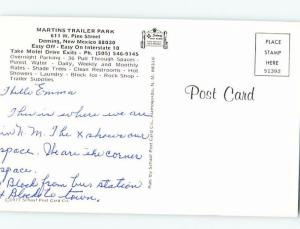 MARTINS TRAILER PARK
611 W. Pine Street
Deming, New Mexico 88030
Easy Off - Easy On Interstate 10
Take Motel Drive Exits - Ph. (505) 546-9145
Overnight Parking - 36 Pull Through Spaces -
Purest Water - Daily, Weekly and Monthly
Rates - Shade Trees - Clean Restrooms - Hot
Showers - Laundry - Block Ice - Rock Shop -
Trailer Supplies
PLACE
STAMP
HERE
51393
Post Card
Hello Emma
This is where we are
in N.M. The X shows our
space. We are the corner
space.
Block from bus station
Blocks to town.
©1977 Schaaf Post Card Co.
Pub. by Schaaf Post Card